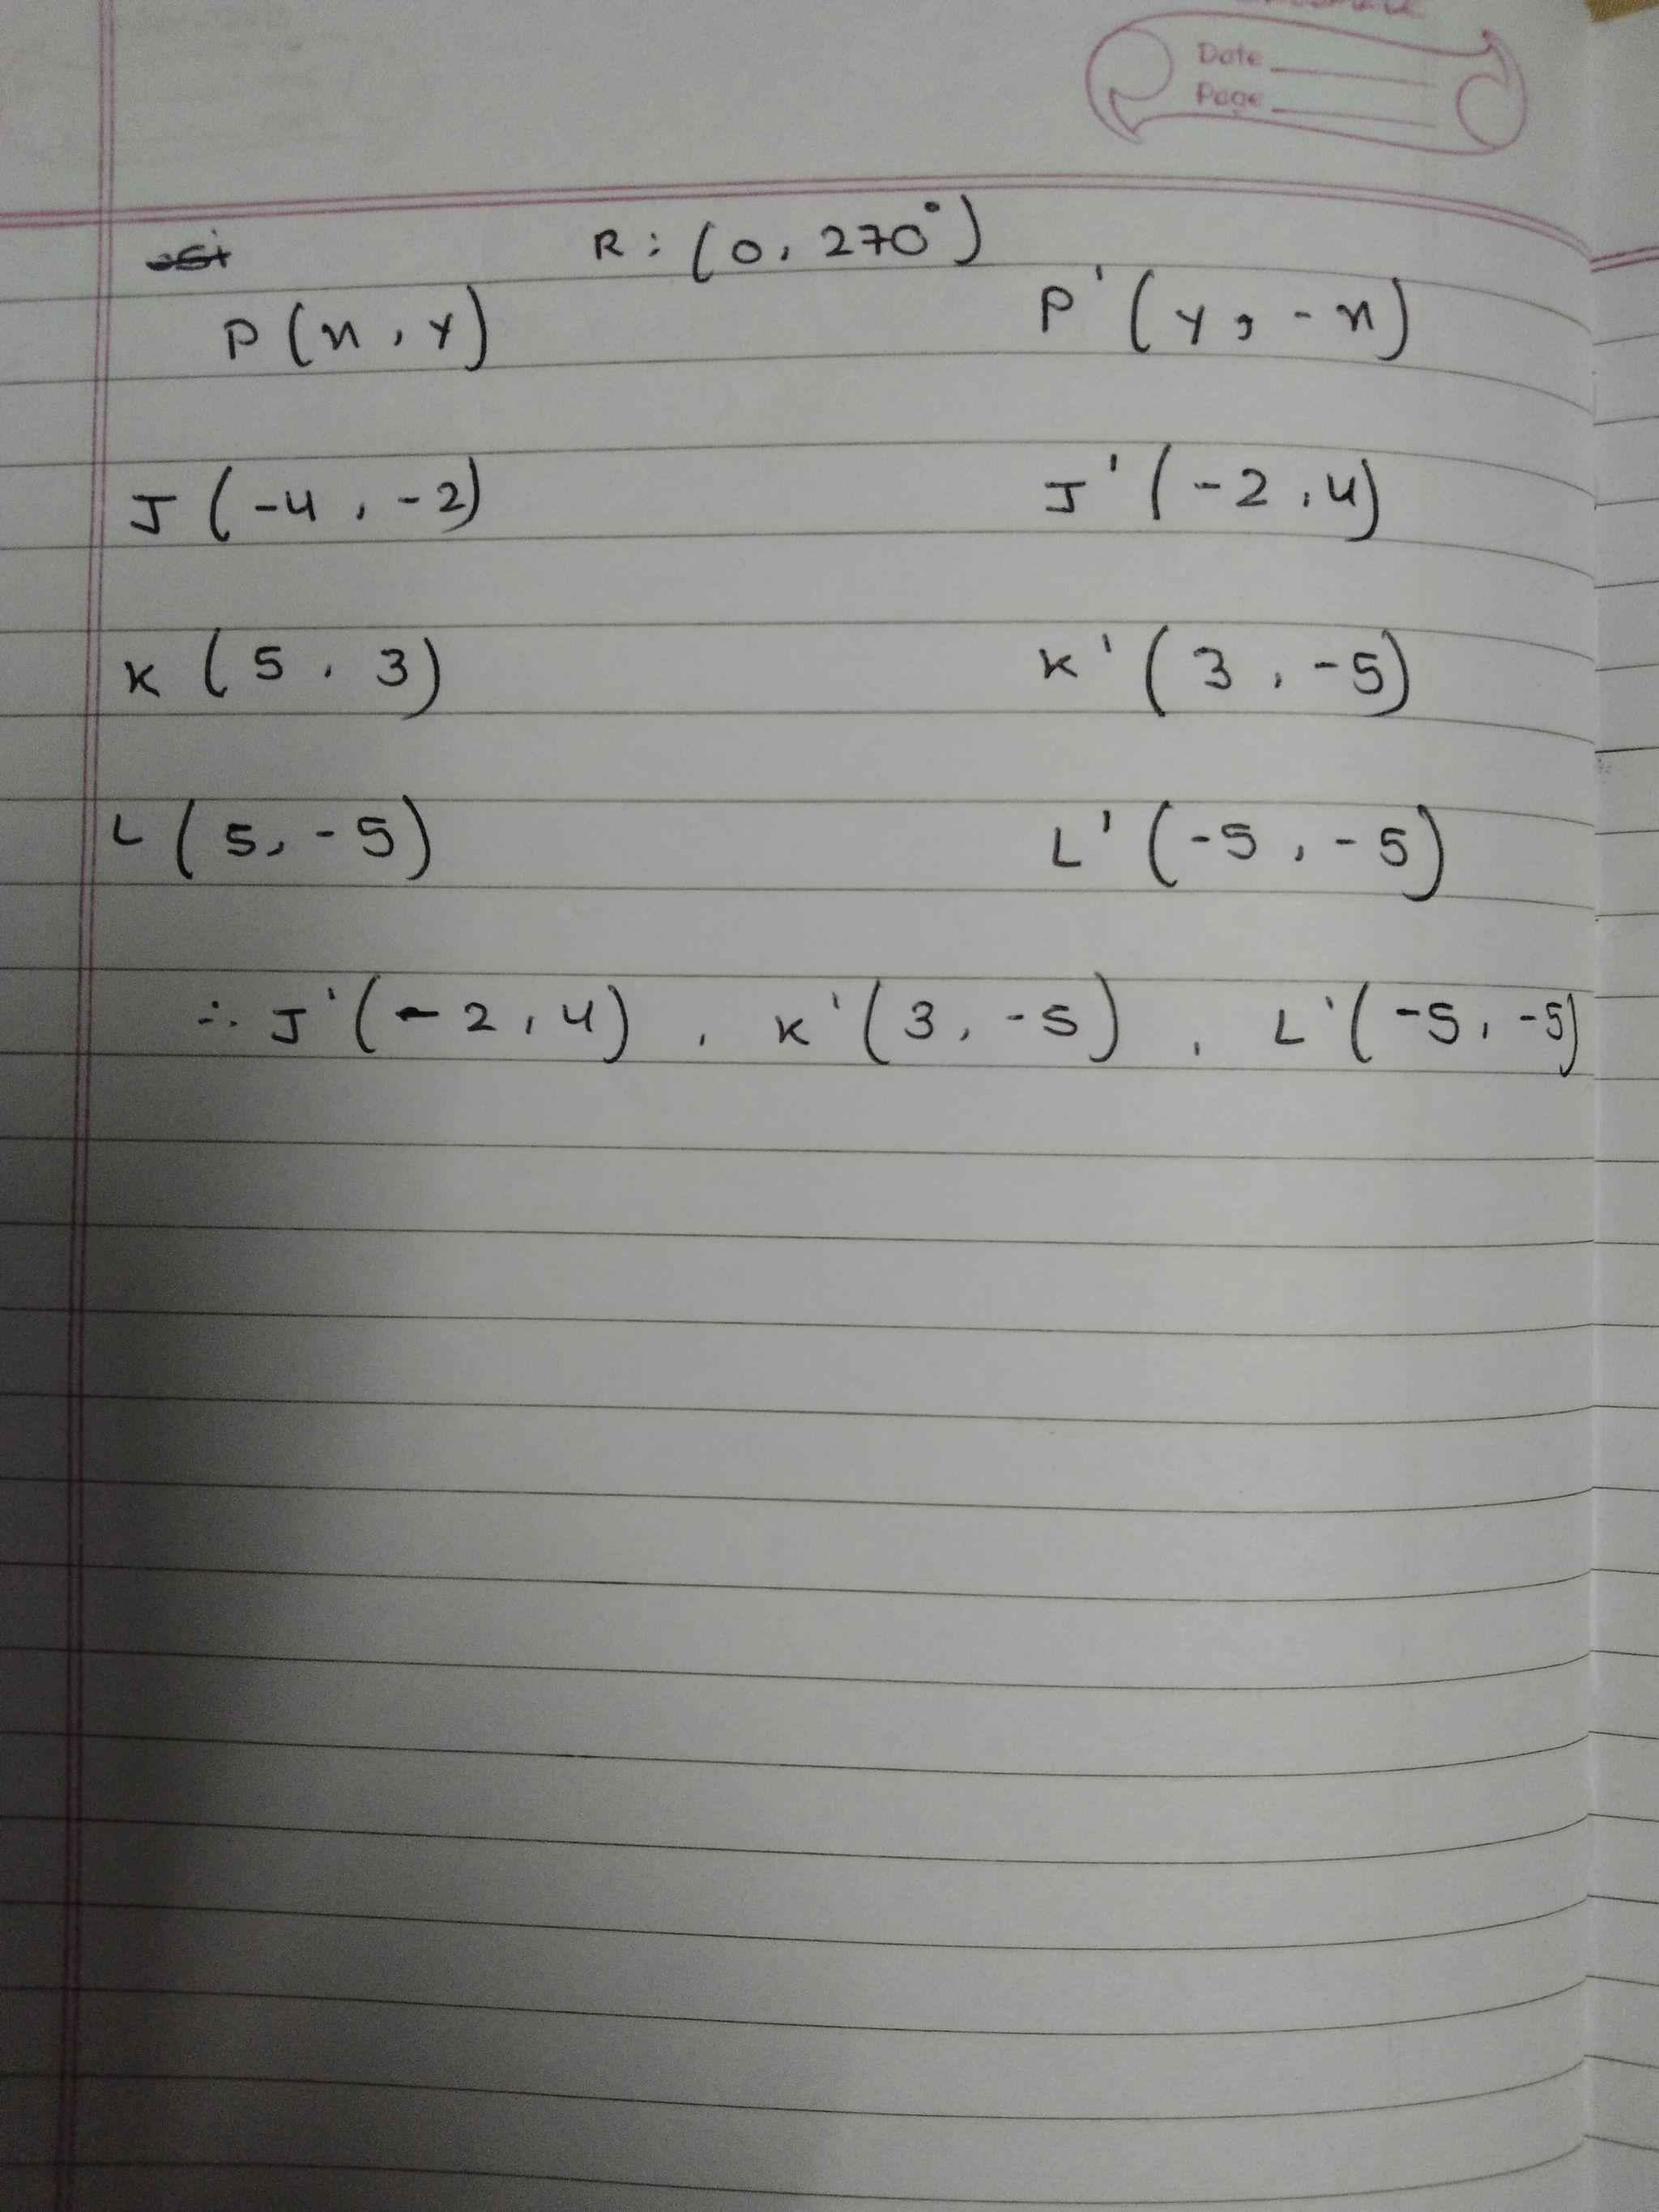 Date
Page
R : (0, 270°)
P (x, y) P' (y, -x)
J (-4, -2) J' (-2, 4)
K (5, 3) K' (3, -5)
L (5, -5) L' (-5, -5)
∴ J' (-2, 4), K' (3, -5), L' (-5, -5)